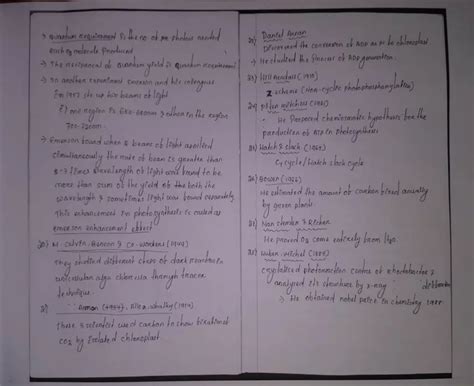 → Quantum requirement is the no of photons needed
each O2 molecule produced
→ The reciprocal of quantum yield is Quantum requirement
→ In another experiment Emerson and his colleagues
In 1957 she us two beams of light
one region is 680nm & other in the region
700-720nm.
→ Emerson found when 2 beams of light applied
simultaneously the rate of beam is greater than
wavelength of light was found to be
more than sum of the yield of the both the
wavelength & sometimes light was found separately
This enhancement in photosynthesis is called as
emerson enhancement effect
30) M. Calvin, Benson & co-workers (1949)
They studied different steps of dark reaction in
unicellular alga chlorella through tracer
technique.
Arnon (1954), Allen, whatley (1954)
these 3 scientist used carbon to show fixation of
CO2 by Isolated chloroplast
Daniel Arnon
Discovered the conversion of ADP to ATP in chloroplast
→ He studied the process of ATP generation.
Hill Bendall
Z scheme (Non-cyclic photophosphorylation)
peter mitchell
He proposed chemiosmotic hypothesis for the
production of ATP in photosynthesis
Hatch & slack
C4 cycle/Hatch slack cycle
He estimated the amount of carbon fixed annually
by green plants
Van
He proved O2 come entirely from H2O.
Huber, Michel
crystallised photoreaction centre of Rhodobacter &
analysed its structure by x-ray
diffraction
→ He obtained nobel prize in chemistry 1988